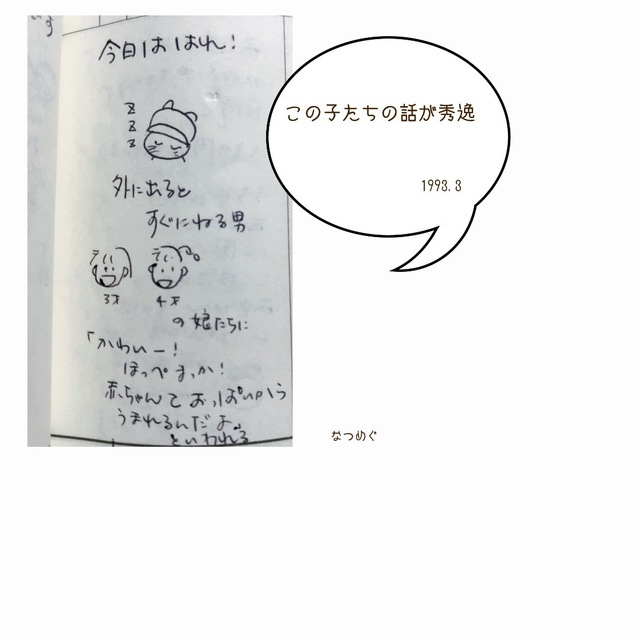 す
今日ははれ!
z
z
z
外にあると
すぐにねる男
3才 4才
の娘たちに
「かわいー!
ほっぺまっか!
赤ちゃんておっぱいから
うまれるんだよ。
といわれる
この子たちの話が秀逸
1993.3
なつめぐ